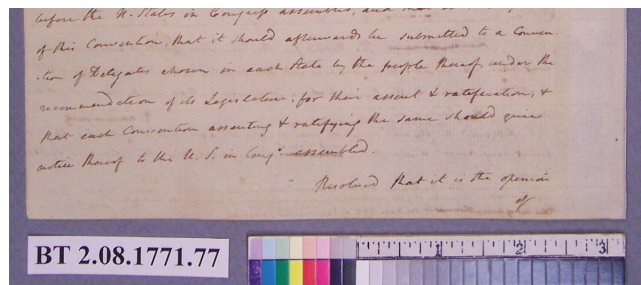 before the U. States in Congress assembled, and that it is the opinion
of this Convention, that it should afterwards be submitted to a Conven
-tion of Delegates chosen in each State by the people thereof, under the
recommendation of its Legislature, for their assent & ratification; &
that each Convention assenting & ratifying the same should give
notice thereof to the U. S. in Cong.s assembled.
Resolved that it is the opinion
of
BT 2.08.1771.77
1 2 3